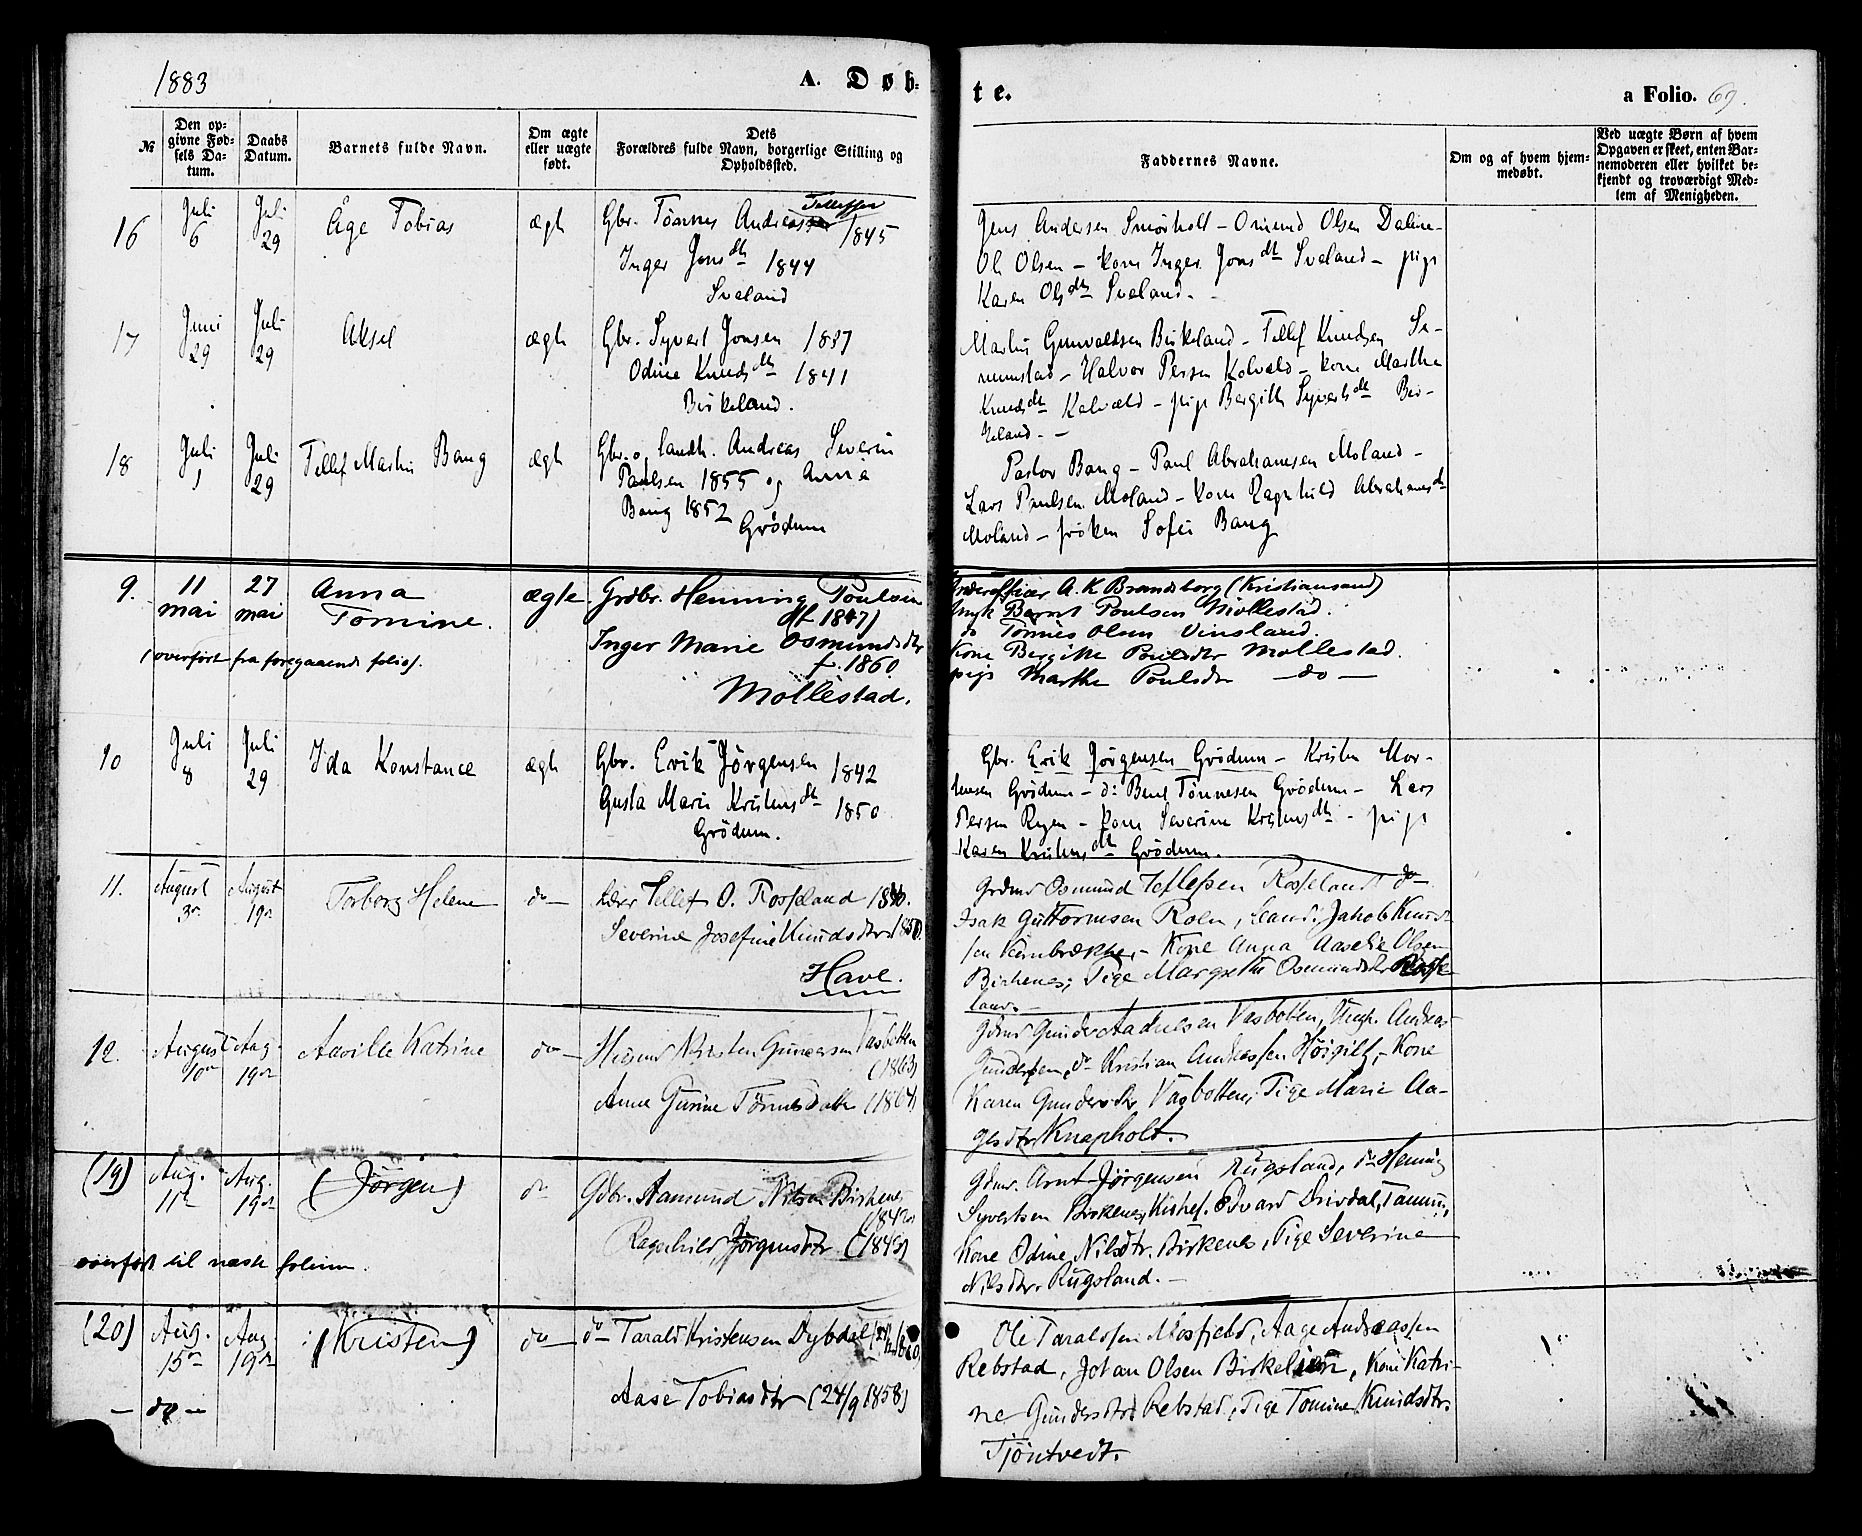 1883
A. Døb-
te.
a Folio. 69.
№
Den op-
givne Fød-
sels Da-
tum.
Daabs
Datum.
Barnets fulde Navn.
Om ægte
eller uægte
født.
Dets
Forældres fulde Navn, borgerlige Stilling og
Opholdssted.
Faddernes Navne.
Om og af hvem hjem-
medøbt.
Ved uægte Børn af hvem
Opgaven er skeet, enten Bar-
nemoderen eller hvilket be-
kjendt og troværdigt Med-
lem af Menigheden.
16
Juli
6
Juli
29
Åge Tobias
ægte
Gbr. Tönnes Andreas Tellefsen 1845
Inger Jonsdtr 1844
Sveland
Jens Andersen Smörholt - Omund Olsen Daline-
Ole Olsen - kone Inger Jonsdtr Sveland - pige
Karen Olsdtr Sveland. -
17
Juni
29
Juli
29
Aksel
ægte
Gbr. Syvert Jonsen 1837
Odine Knudsdtr 1841
Birkeland.
Martin Gunvaldsen Birkeland - Tellef Knudsen Se-
numstad - Halvor Persen Kalvald - kone Marthe
Knudsdtr Kalvæld - pige Bergitte Syvertsdtr Bir-
keland. -
18
Juli
1
Juli
29
Tellef Martin Bang
ægte
Gbr. og landh. Andreas Severin
Paulsen 1855 og Anna
Bang 1852
Grödum
Pastor Bang - Paul Abrahamsen Moland -
Lars Paulsen Moland - kone Ragnhild Abrahamsdtr
Moland - fröken Sofie Bang
9.
11
mai
27
mai
Anna
Tomine.
(overfört fra foregaaende folio).
ægte
Grdbr. Henning Poulsen
(f. 1847)
Inger Marie Osmundsdtr
f. 1860.
Mollestad.
Underofficer A. K Brandsborg (Kristiansand)
Ungk Bernt Poulsen Mollestad.
do Tönnes Olsen Vinsland.
Kone Bergitte Poulsdtr Mollestad.
pige Marthe Poulsdtr - do -
10
Juli
8
Juli
29
Ida Konstance
ægte
Gbr. Erik Jörgensen 1842
Gusta Marie Kristensdtr 1850.
Grödum.
Gbr. Erik Jörgensen Grödum - Kristen Mor-
tensen Grödum - do Bent Tönnesen Grödum - Lars
Persen Rugen - kone Severine Kristensdtr - pige
Karen Kristensdtr Grödum.
11.
August
3die
August
19de
Torborg Helene
do -
Lærer Tellef O. Rosseland
Severine Josefine Knudsdtr. 1850.
Have.
Grdmd Osmund Tellefsen Rosseland do -
Isak Guttormsen Rolen, Leand. Jakob Knud-
sen - Kone Anna Aaselie Olsen
Birkenes; Pige Margrethe Osmundsdtr Rosse-
land. -
12.
August
10de
Aug.
19de
Aasille Katrine
do -
Husmd Kristen Gundersen Vasbotten
(1863)
Anne Gurine Tönnesdatter (1864)
Gdmd Gunder Aadnesen Vasbotten, Ungk. Andreas
Gundersen, do Kristian Andreassen Höigilt, - Kone
Karen Gundersdtr Vasbotten, Pige Marie Aa-
gesdtr Knapholt.
(19)
Aug.
11te
Aug.
19de
(Jörgen)
do
Gdbr. Aamund Nilsen Birkenes
(1842)
Ragnhild Jörgensdtr. (1843)
overfört til næste folium.
Gdmd. Arnt Jörgensen Rugsland, do Henning
Syvertsen Birkenes, Edvard Drivdal,
Kone Odine Nilsdtr. Birkenes, Pige Severine
Nilsdtr. Rugsland. -
(20)
Aug.
15de
Aug.
19de
(Kristen)
do -
do Tarald Kristensen Dybdal
Aase Tobiasdtr (24/9 1858)
- do -
Ole Taraldsen Mosfjeld, Aage Andreassen
Rebstad, Johan Olsen Birkelien, Kone Katri-
ne Gundersdtr. Rebstad, Pige Tomine Knudsdtr.
Tjöntvedt.